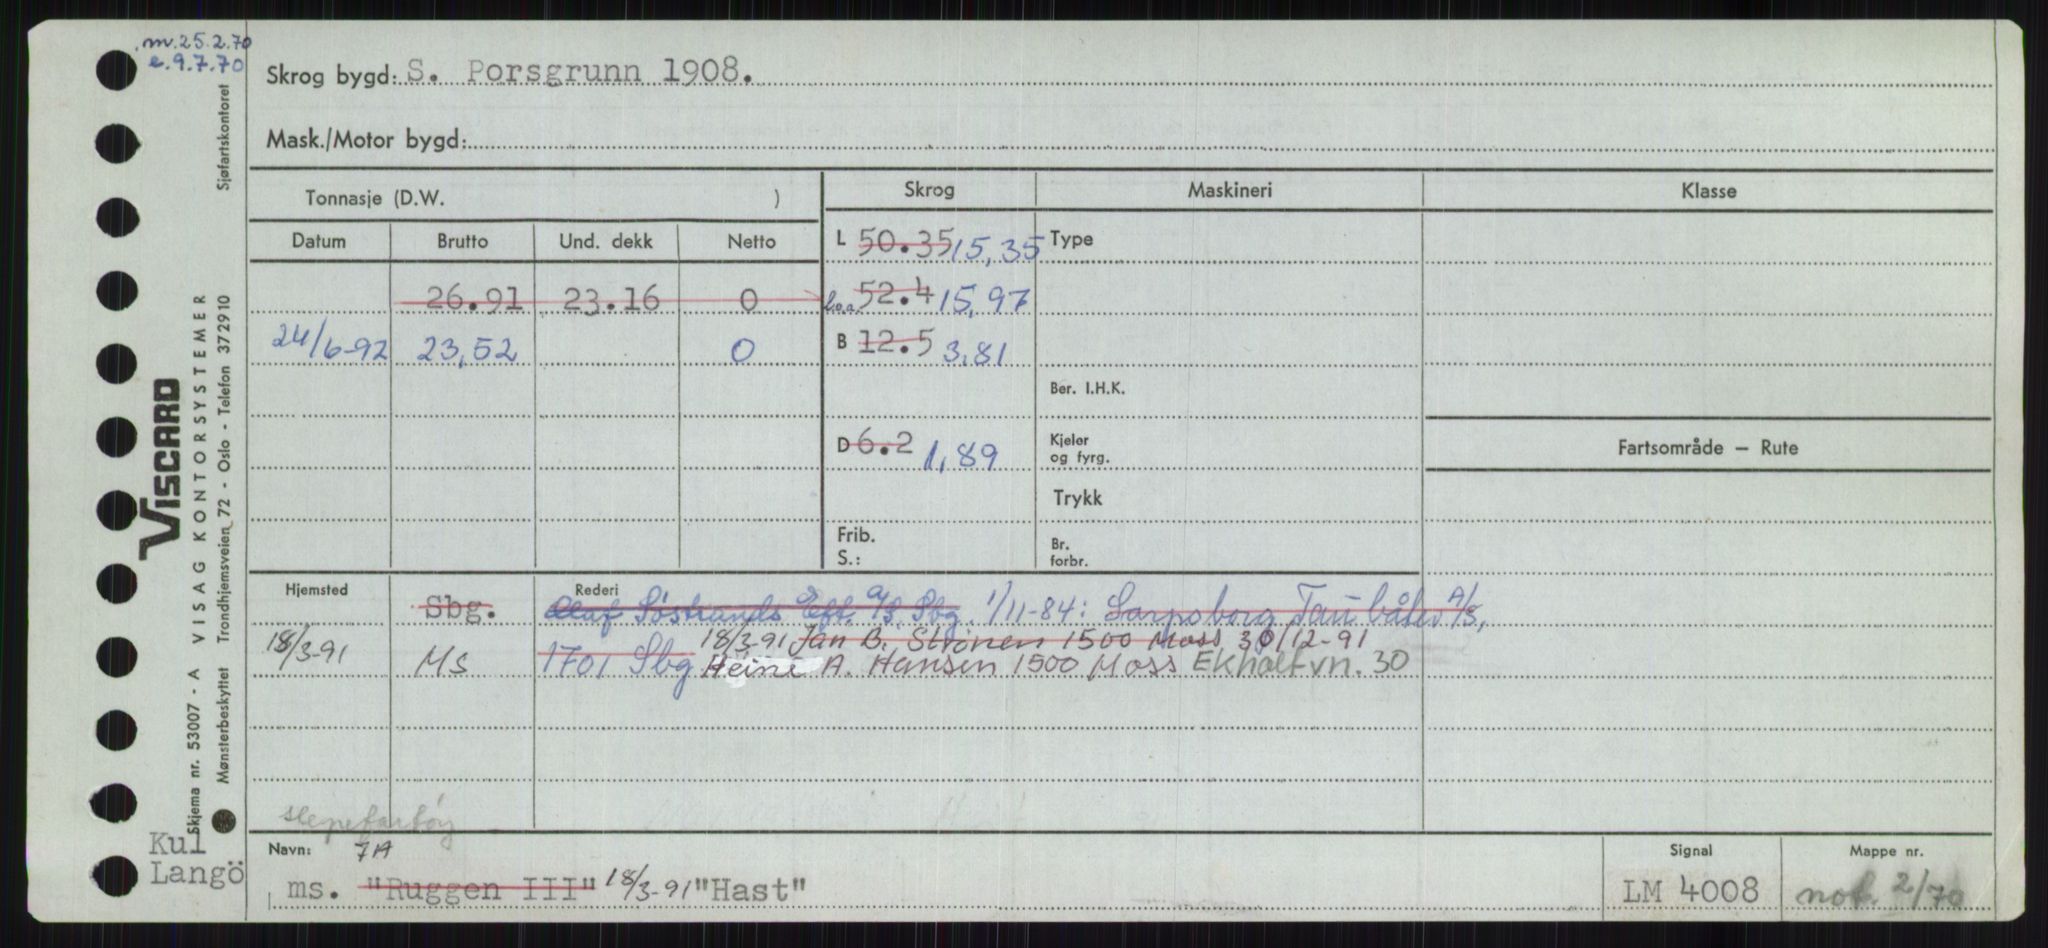 m.25.2.70
e.9.7.70
Skrog bygd: S. Porsgrunn 1908.
Mask./Motor bygd:
Tonnasje (D.W. )
Skrog
Maskineri
Klasse
Datum Brutto Und. dekk Netto
L 50.35 15,35
Type
26.91 23.16 0
l.o.a. 52.4 15,97
24/6-92 23,52 0
B 12.5 3,81
Ber. I.H.K.
D 6.2 1,89
Kjeler
og fyrg.
Fartsområde — Rute
Trykk
Frib.
S.:
Br.
forbr.
Hjemsted
Rederi
Sbg. Olaf Söstrands Eft. A/S, Sbg. 1/11-84: Sarpsborg Taubåter A/S,
18/3-91 Jan B. Strönen 1500 Moss 30/12-91
18/3-91 MS 1701 Sbg Heine A. Hansen 1500 Moss Ekholtvn. 30
slepefartöy
Navn: 7A
ms. "Ruggen III" 18/3-91 "Hast"
Signal
LM 4008
Mappe nr.
not 2/70
Kul
Langö
VISCARD
Skjema nr. 53007 - A VISAG KONTORSYSTEMER
Mønsterbeskyttet Trondhjemsveien 72 - Oslo - Telefon 372910 Sjøfartskontoret